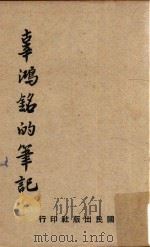 辜鴻銘的筆記
行印社版出民國